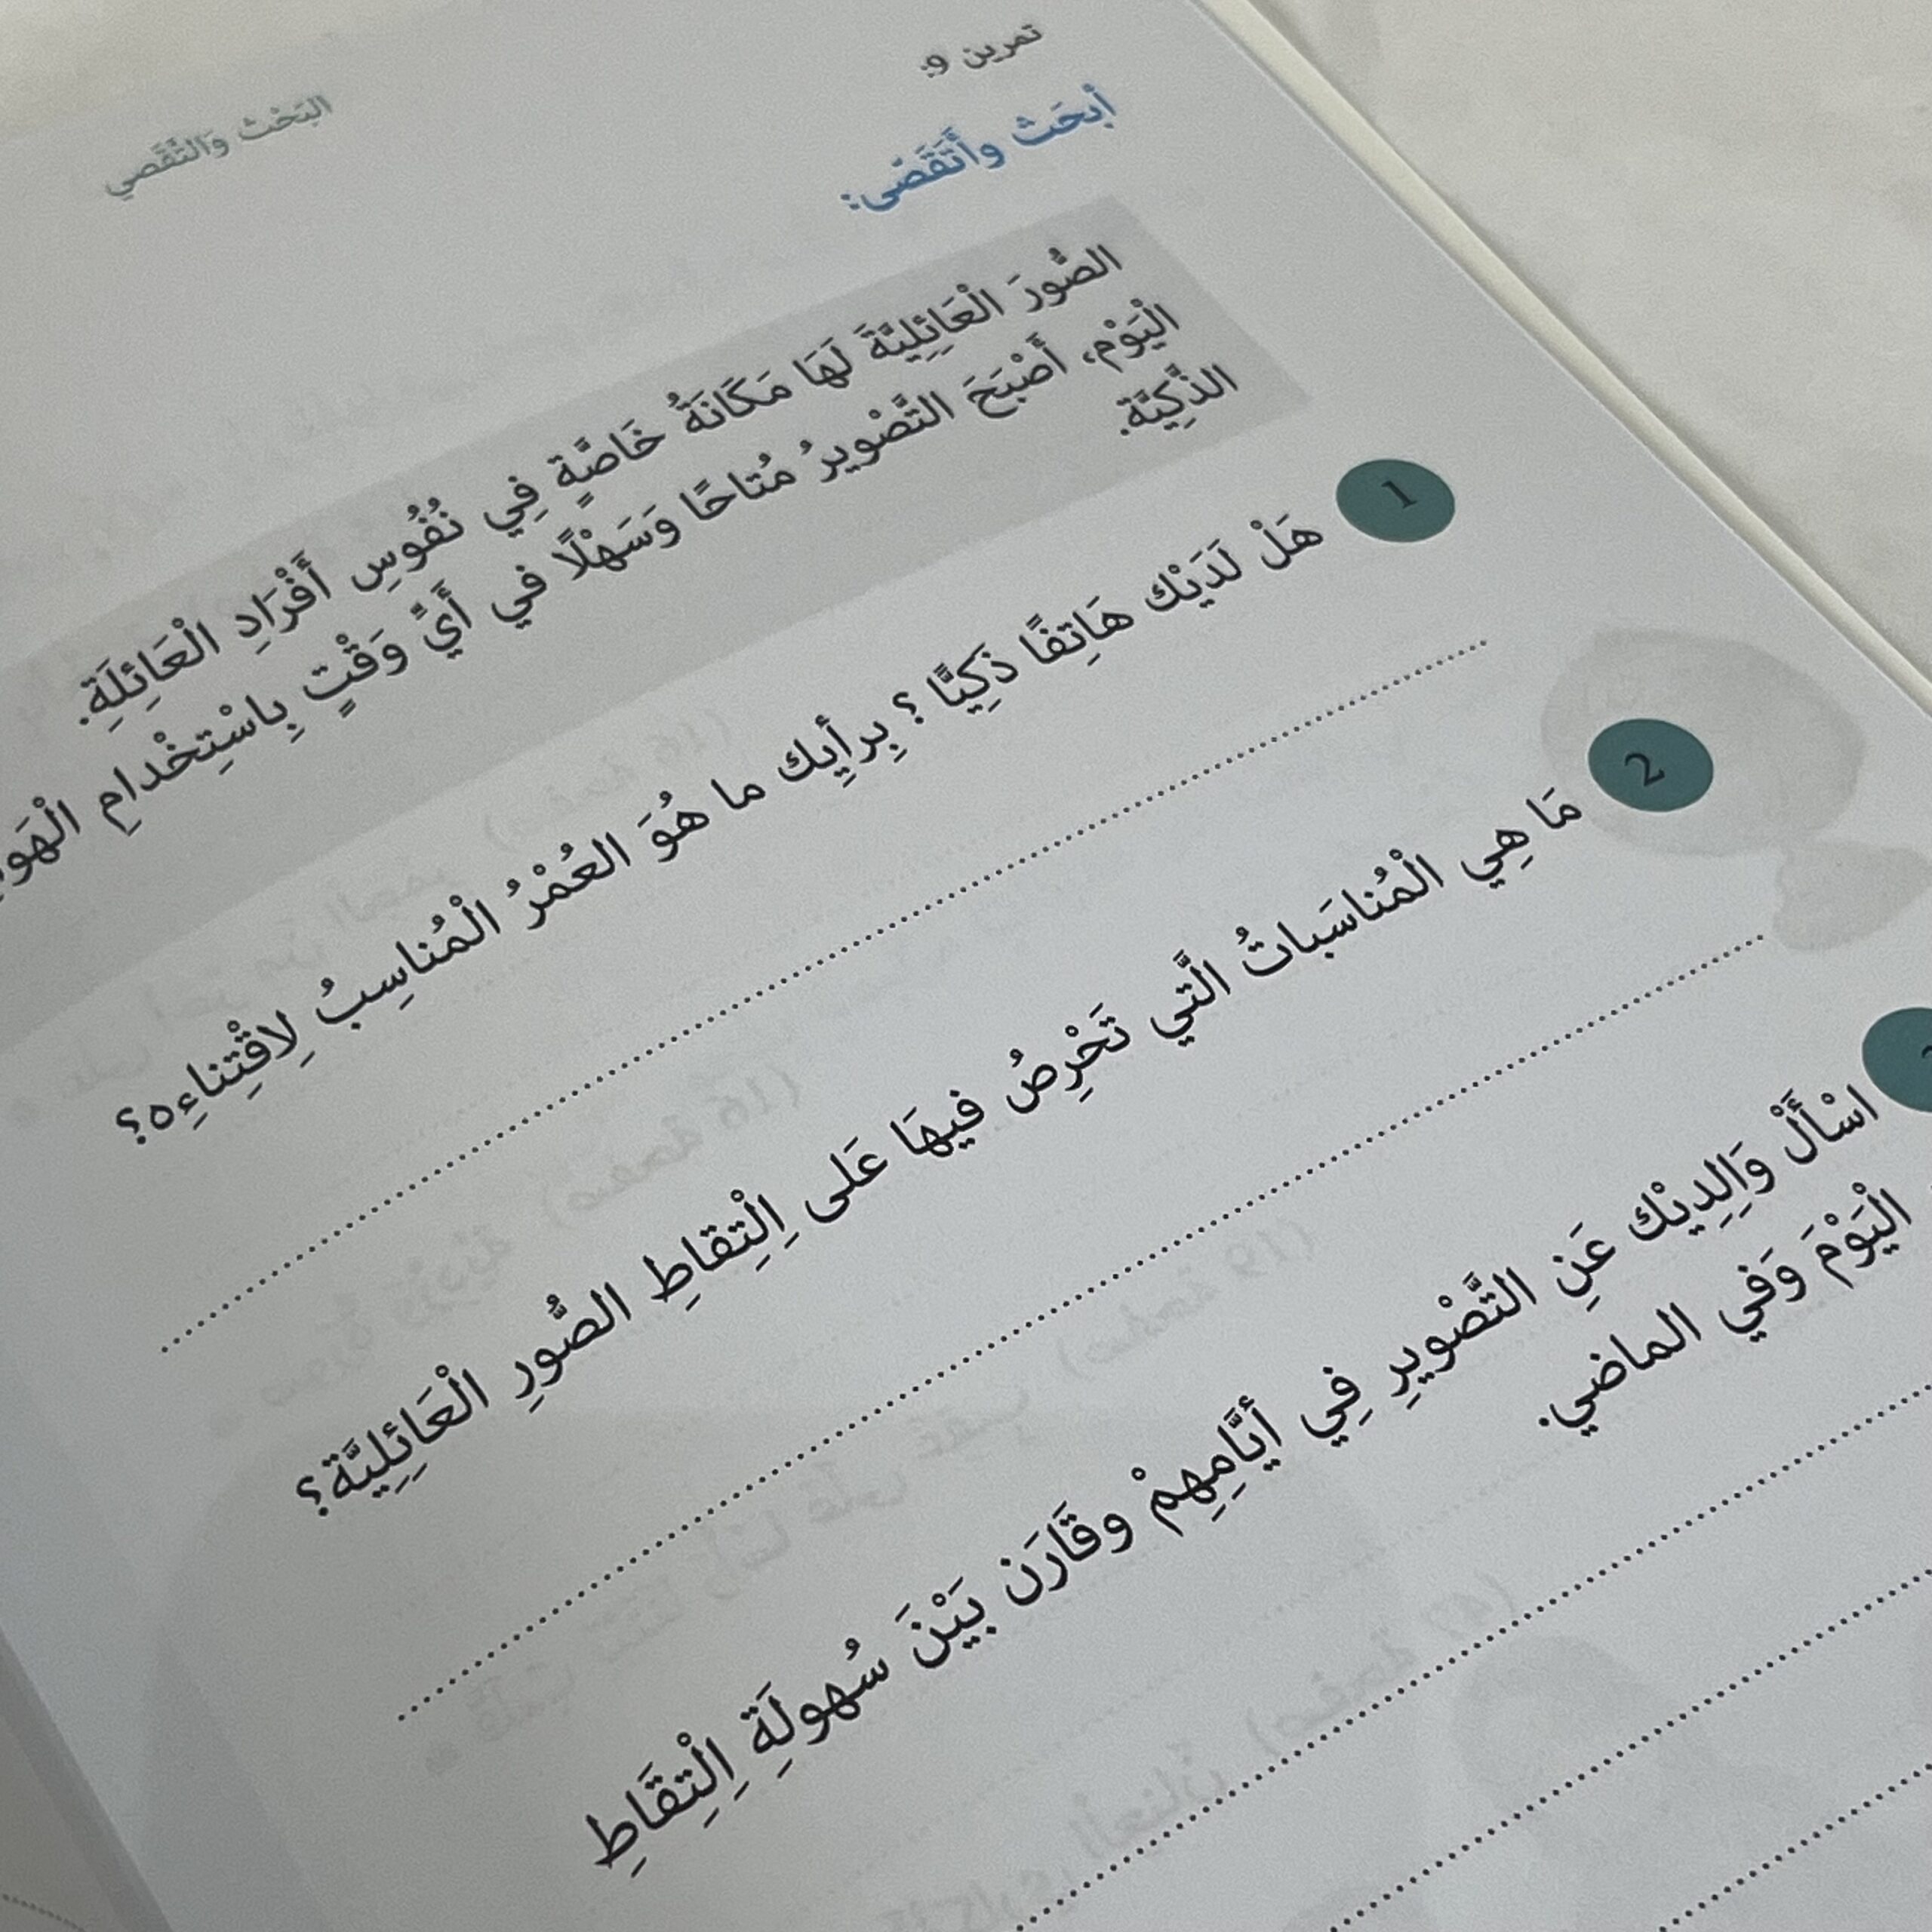 تمرين 9:
البَحْث وَالتَّقَصي
أبحَث وأتَقَصّى:
الصُّورَ الْعَائِلِيَّةَ لَهَا مَكَانَةٌ خَاصَّةٍ فِي نُفُوسِ أَفْرَادِ الْعَائِلَةِ.
الْيَوْم، أَصْبَحَ التَّصْويرُ مُتاحًا وَسَهْلًا في أَيِّ وَقْتٍ بِاسْتِخْدامِ
الذَّكِيَّة.
1 هَلْ لَدَيْك هَاتِفًا ذَكِيًّا ؟ بِرأيِك ما هُوَ العُمْرُ الْمُناسِبُ لِاقْتِناءِه؟
2 مَا هِي الْمُناسَباتُ الَّتي تَحْرِصُ فيهَا عَلى اِلْتِقاطِ الصُّورِ الْعَائِلِيَّة؟
اسْأَلْ وَالِدِيْك عَنِ التَّصْويرِ فِي أيَّامِهِمْ وقَارَن بَيْنَ سُهولَةِ اِلْتِقَاطِ
الْيَوْمَ وَفي الماضي.